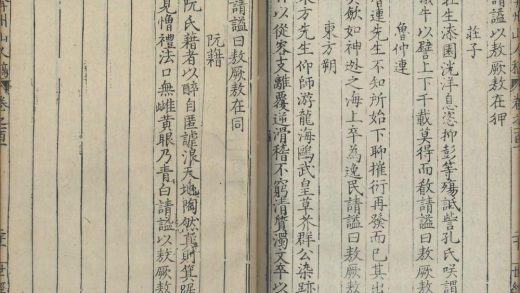 請謚以敖厥敖在狎
莊子
莊生漆園洸洋自恣抑彭等殤詆訾孔氏咲謂
犧牛以譬上下千載莫得而斆請謚曰敖厥敖
魯仲連
魯連先生不知所始下聊摧衍再發而已其出
歘如神逝之海上卒為逸民請謚曰敖厥敖
東方朔
東方先生仰師游龍海鷗武皇草芥群公染跡
以從容支離覆逆滑稽不窮清質濁文卒以
請謚曰敖厥敖在同
阮籍
阮氏籍者以醉自匿謔浪天地陶然則箕踞
見憎禮法口無雌黃眼乃青白請謚以敖厥敖
州山人稿 卷之 世經